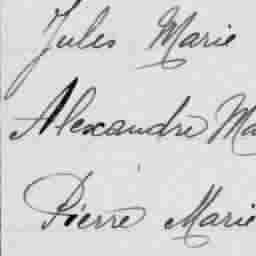 Jules Marie
Alexandre Ma
Pierre Marie